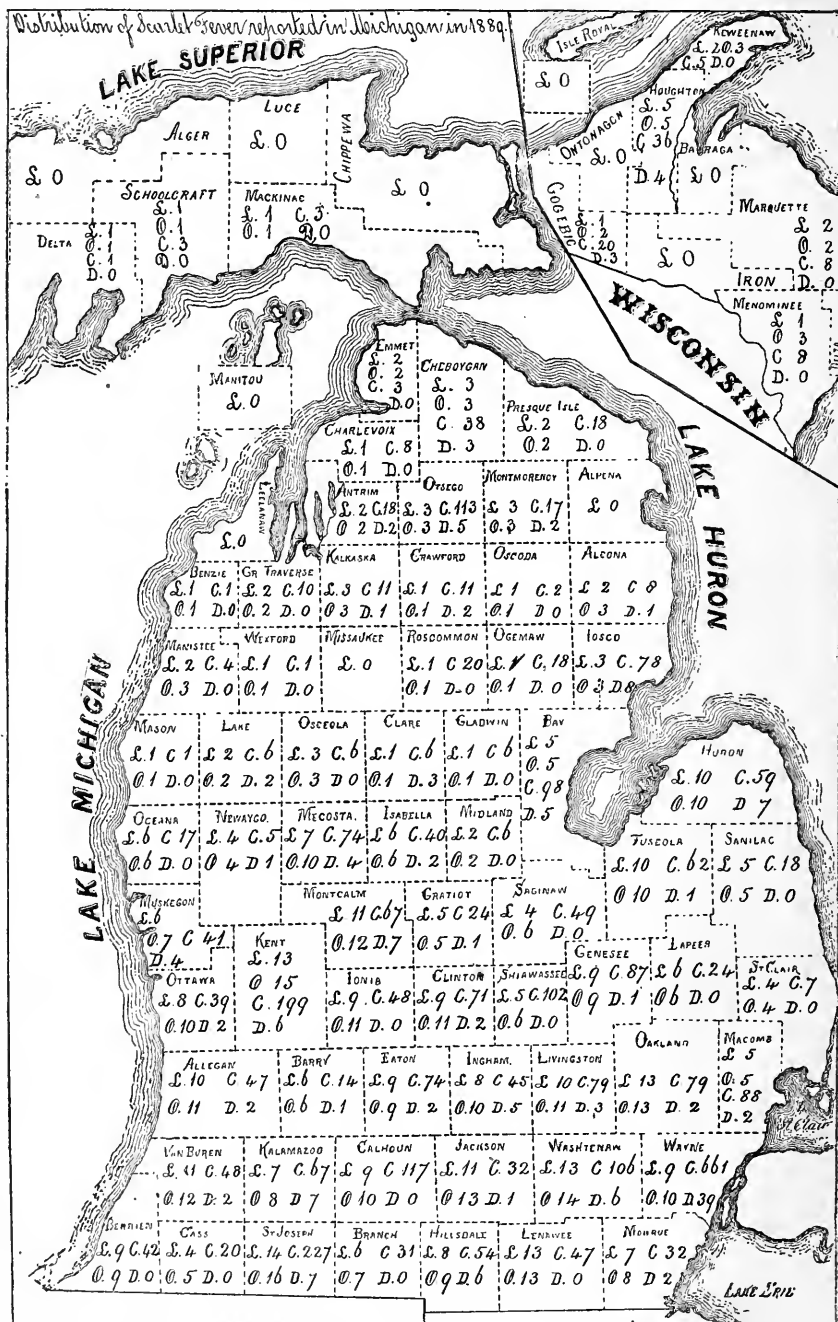 Distribution of Scarlet Fever reported in Michigan in 1889.
LAKE SUPERIOR
ISLE ROYAL
£ 0
KEWEENAW
£. 2 O. 3
C. 5 D. 0
HOUGHTON
£. 5
O. 5
C. 36
D. 4
ONTONAGON
£. 0
BARAGA
£ 0
GOGEBIC
£. 1
O. 2
C. 20
D. 3
£ 0
MARQUETTE
£ 2
O. 2
C. 8
D. 0
IRON
MENOMINEE
£ 1
O 3
C 8
D. 0
WISCONSIN
LUCE
£. 0
ALGER
£ 0
CHIPPEWA
£ 0
SCHOOLCRAFT
£. 1
O. 1
C. 3
D. 0
MACKINAC
£. 1 C. 3
O. 1 D. 0
DELTA
£. 1
O. 1
C. 1
D. 0
EMMET
£. 2
O. 2
C. 3
D. 0
CHEBOYGAN
£. 3
O. 3
C. 38
D. 3
PRESQUE ISLE
£. 2 C. 18
O. 2 D. 0
MANITOU
£. 0
CHARLEVOIX
£. 1 C. 8
O. 1 D. 0
LAKE HURON
LEELANAW
£. 0
ANTRIM
£. 2 C. 18
O 2 D. 2
OTSEGO
£. 3 C. 113
O. 3 D. 5
MONTMORENCY
£ 3 C. 17
O. 3 D. 2
ALPENA
£ 0
BENZIE
£. 1 C. 1
O. 1 D. 0
GR TRAVERSE
£. 2 C. 10
O. 2 D. 0
KALKASKA
£. 3 C 11
O 3 D. 1
CRAWFORD
£. 1 C. 11
O. 1 D. 2
OSCODA
£ 1 C. 2
O. 1 D 0
ALCONA
£ 2 C 8
O 3 D. 1
MANISTEE
£. 2 C. 4
O. 3 D. 0
WEXFORD
£. 1 C. 1
O. 1 D. 0
MISSAUKEE
£. 0
ROSCOMMON
£. 1 C 20
O. 1 D. 0
OGEMAW
£. 1 C. 18
O. 1 D. 0
IOSCO
£. 3 C. 78
O 3 D 8
LAKE MICHIGAN
MASON
£. 1 C 1
O. 1 D. 0
LAKE
£ 2 C. 6
O. 2 D. 2
OSCEOLA
£. 3 C. 6
O. 3 D 0
CLARE
£. 1 C. 6
O. 1 D. 3
GLADWIN
£. 1 C 6
O. 1 D. 0
BAY
£ 5
O. 5
C. 98
D. 5
HURON
£. 10 C. 59
O. 10 D 7
OCEANA
£. 6 C 17
O. 6 D. 0
NEWAYGO.
£. 4 C. 5
O 4 D 1
MECOSTA.
£ 7 C. 74
O. 10 D. 4
ISABELLA
£ 6 C. 40
O. 6 D. 2
MIDLAND
£. 2 C. 6
O. 2 D. 0
TUSCOLA
£. 10 C. 62
O 10 D. 1
SANILAC
£ 5 C. 18
O. 5 D. 0
MUSKEGON
£. 6
O. 7 C 41
D. 4
MONTCALM
£. 11 C. 67
O. 12 D. 7
GRATIOT
£. 5 C 24
O. 5 D. 1
SAGINAW
£ 4 C. 49
O. 6 D. 0
OTTAWA
£. 8 C. 39
O. 10 D 2
KENT
£. 13
O 15
C. 199
D. 6
IONIA
£. 9 C. 48
O. 11 D. 0
CLINTON
£. 9 C. 71
O. 11 D. 2
SHIAWASSEE
£. 5 C. 102
O. 6 D. 0
GENESEE
£. 9 C. 87
O 9 D. 1
LAPEER
£ 6 C. 24
O 6 D. 0
ST CLAIR
£. 4 C. 7
O. 4 D. 0
ALLEGAN
£. 10 C 47
O. 11 D. 2
BARRY
£. 6 C. 14
O. 6 D. 1
EATON
£. 9 C. 74
O. 9 D. 2
INGHAM.
£ 8 C 45
O. 10 D. 5
LIVINGSTON
£ 10 C. 79
O. 11 D. 3
OAKLAND
£ 13 C 79
O. 13 D. 2
MACOMB
£ 5
O. 5
C. 88
D. 2
St Clair
VAN BUREN
£. 11 C. 48
O. 12 D. 2
KALAMAZOO
£. 7 C. 67
O 8 D 7
CALHOUN
£ 9 C. 117
O 10 D 0
JACKSON
£. 11 C. 32
O 13 D. 1
WASHTENAW
£. 13 C 106
O 14 D. 6
WAYNE
£. 9 C. 661
O. 10 D 39
BERRIEN
£. 9 C. 42
O. 9 D. 0
CASS
£. 4 C. 20
O. 5 D. 0
ST JOSEPH
£. 14 C. 227
O. 16 D. 7
BRANCH
£. 6 C 31
O. 7 D. 0
HILLSDALE
£. 8 C. 54
O 9 D. 6
LENAWEE
£. 13 C. 47
O. 13 D. 0
MONROE
£ 7 C 32
O 8 D 2
LAKE ERIE